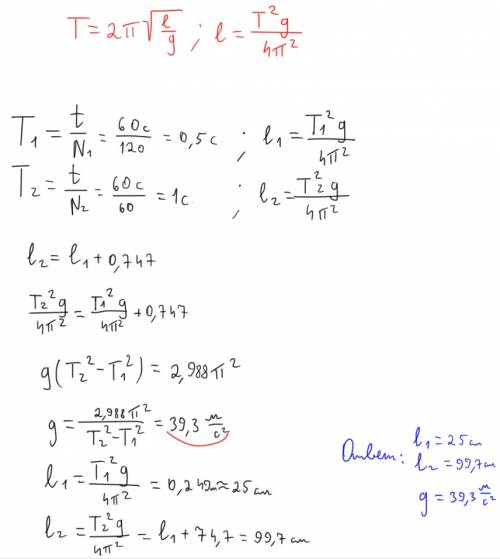 T = 2π√(l/g) ; l = T²g/4π²
T₁ = t/N₁ = 60с/120 = 0,5с ; l₁ = T₁²g/4π²
T₂ = t/N₂ = 60с/60 = 1с ; l₂ = T₂²g/4π²
l₂ = l₁ + 0,747
T₂²g/4π² = T₁²g/4π² + 0,747
g(T₂² - T₁²) = 2,988π²
g = 2,988π²/T₂² - T₁² = 39,3 м/с²
l₁ = T₁²g/4π² = 0,249м ≈ 25см
l₂ = T₂²g/4π² = l₁ + 74,7 = 99,7см
Ответ: l₁ = 25см
l₂ = 99,7см
g = 39,3 м/с²